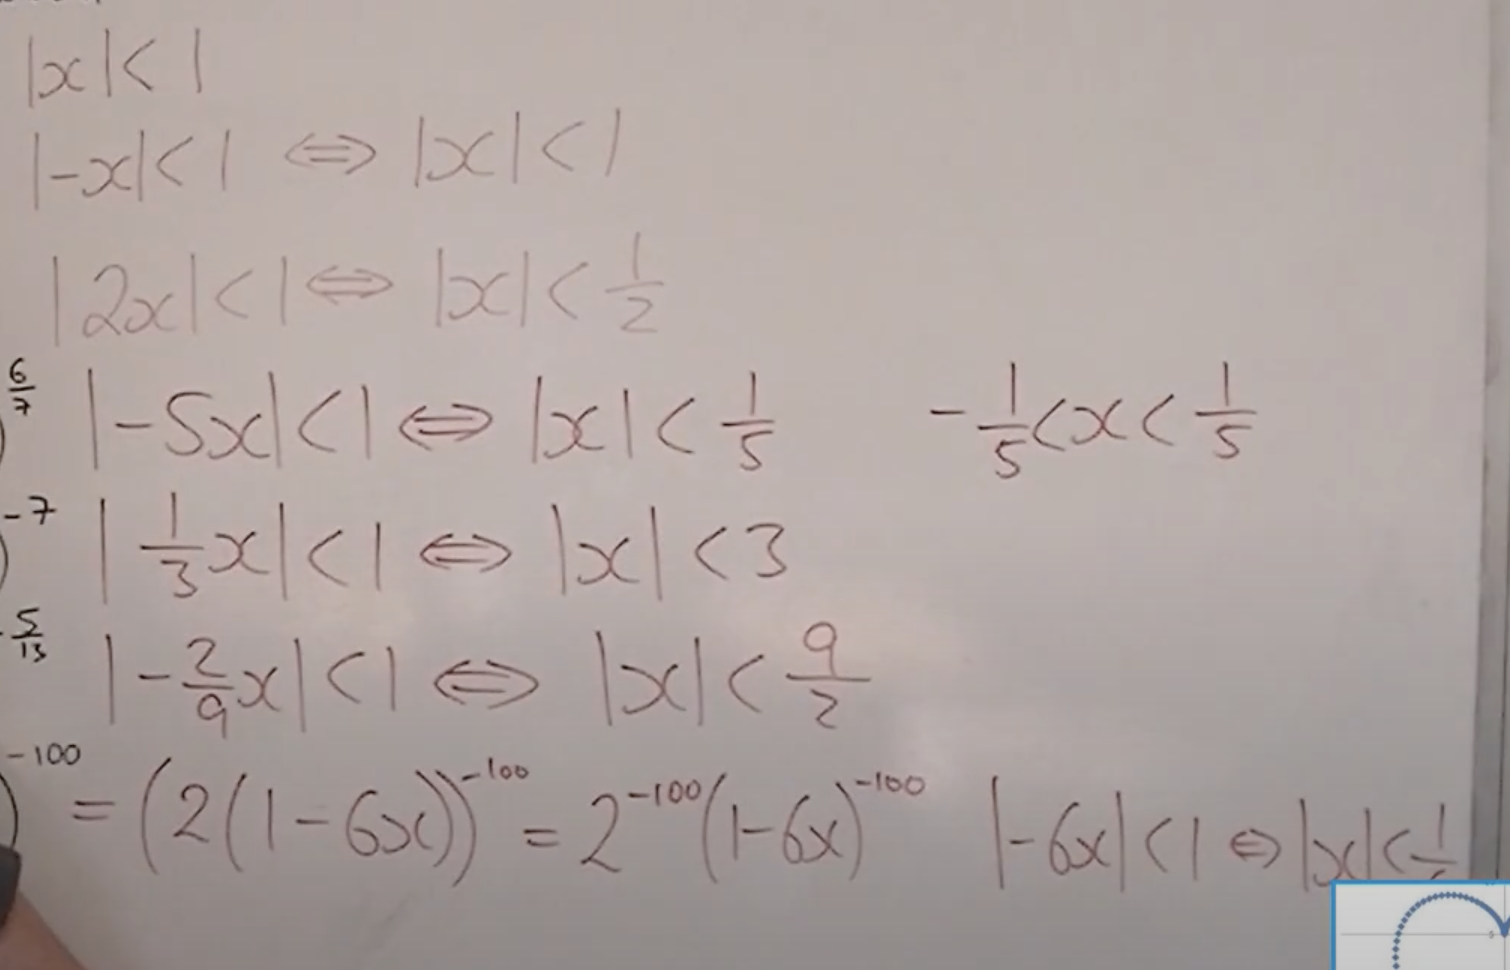 |x| < 1
|-x| < 1 ⇔ |x| < 1
|2x| < 1 ⇔ |x| < 1/2
6/7 |-5x| < 1 ⇔ |x| < 1/5 -1/5 < x < 1/5
)
-7 |1/3 x| < 1 ⇔ |x| < 3
)
5/13 |-2/9 x| < 1 ⇔ |x| < 9/2
)^-100 = (2(1-6x))^-100 = 2^-100 (1-6x)^-100 |-6x| < 1 ⇔ |x| < 1/